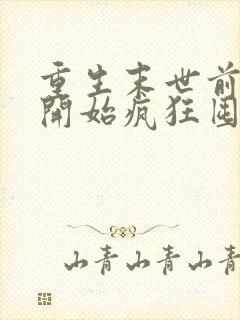 重生末世前
開始瘋狂囤
山青山青山青